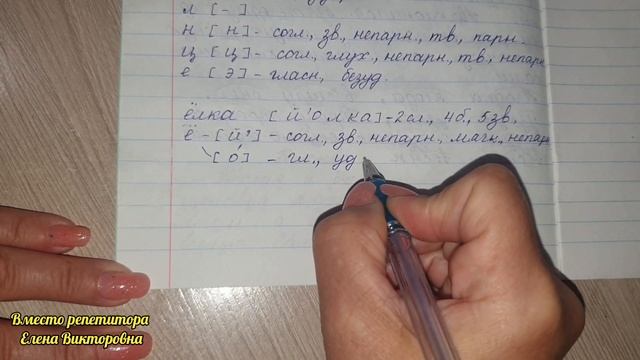 л [-]
н [н] - согл., зв., непарн., тв., парн.
ц [ц] - согл., глух., непарн., тв., непарн
е [э] - гласн., безуд.
ёлка [й'олка] - 2 сл., 4 б., 5 зв.
ё - [й'] - согл., зв., непарн., мягк., непарн
[о́] - гл., уд
Вместо репетитора
Елена Викторовна